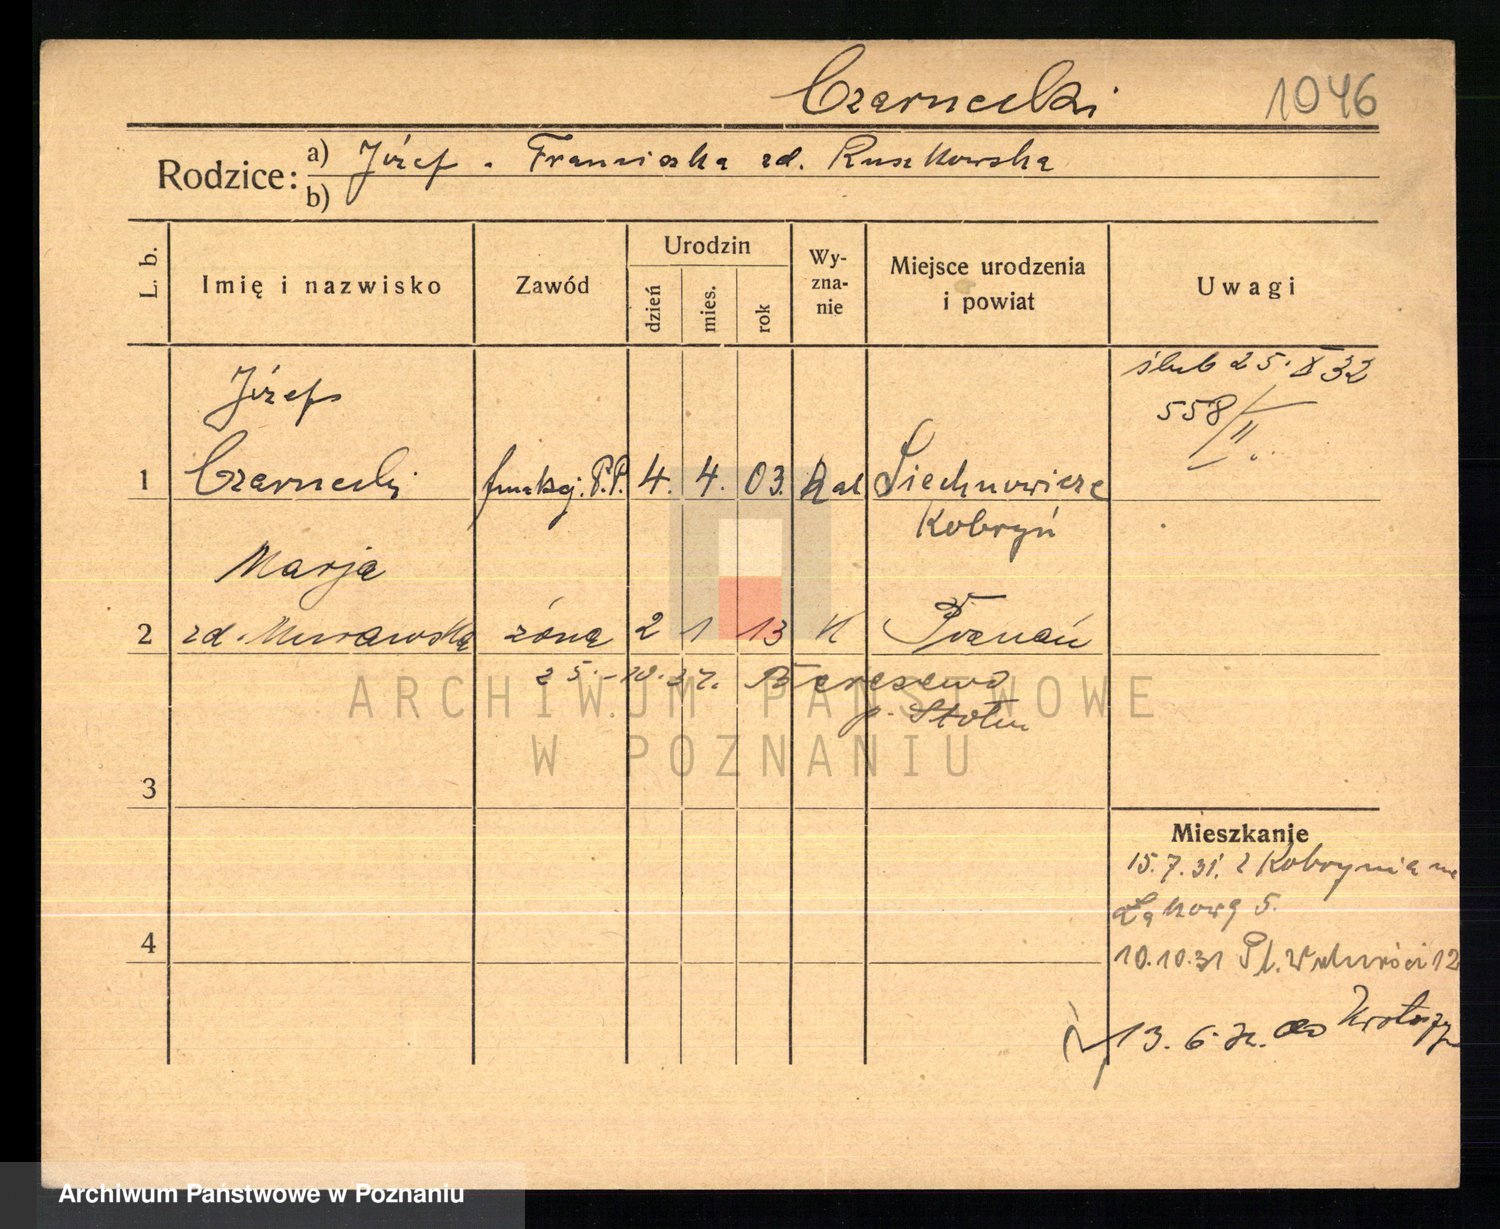 Czarnecki 1046
Rodzice: a) Józef - Franciszka zd. Ruszkowska
b)
L. b.
Imię i nazwisko
Zawód
Urodzin
dzień
mies.
rok
Wy-
zna-
nie
Miejsce urodzenia
i powiat
Uwagi
ślub 25. X 32
558/II
Józef
1 Czarnecki funkcj. P.P. 4. 4. 03. Kat Siechnowicze
Kobryń
Marja
2 zd. Murawska żona 2 1 13 K Poznań
25.-10.37. Berezewo
p. Stolin
3
4
Mieszkanie
15.7.31. z Kobrynia na
Łąkową 5.
10.10.31 Pl. Wolności 12
13. 6. do Krotoszy
ARCHIWUM PAŃSTWOWE
W POZNANIU
Archiwum Państwowe w Poznaniu